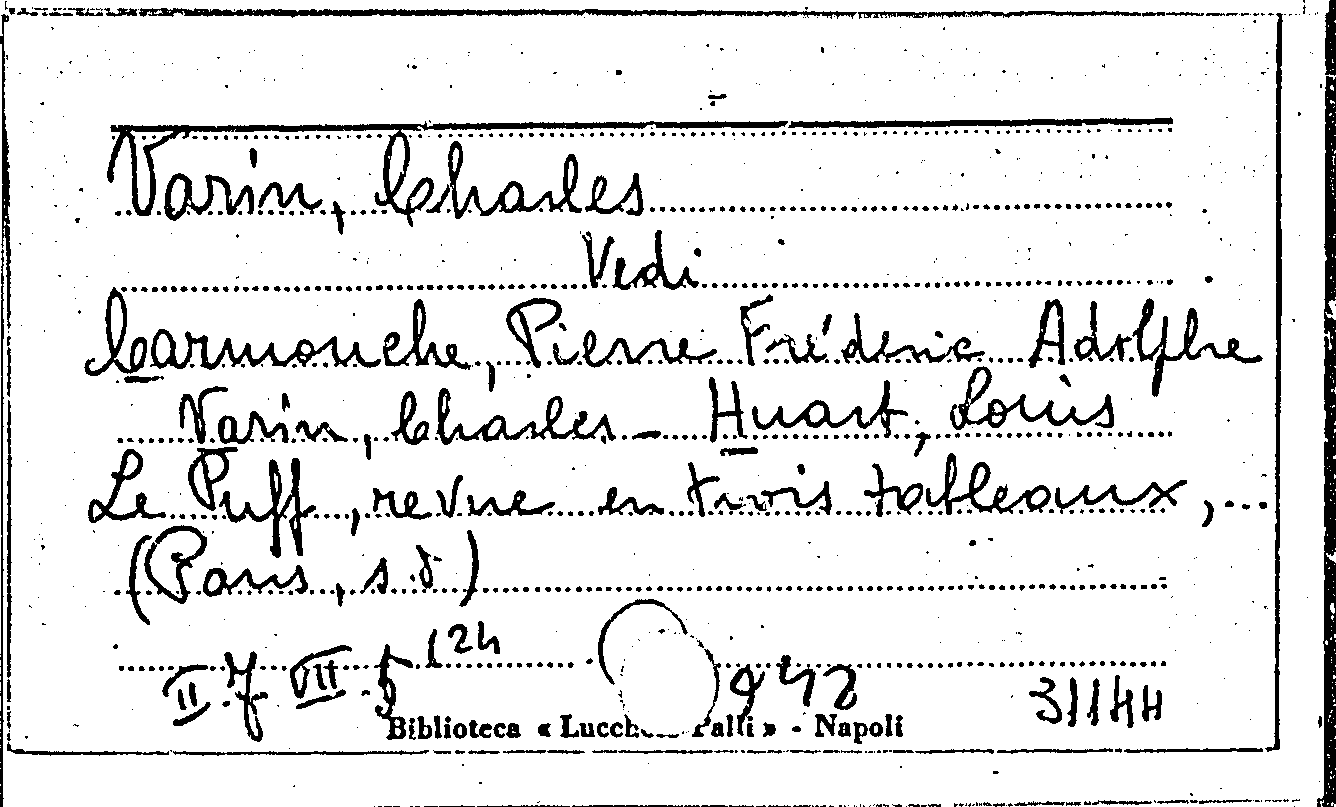 Varin, Charles
Vedi
Carmouche, Pierre Fréderic Adolphe
Varin, Charles - Huart, Louis
Le Puff, revue en trois tableaux, ...
(Paris, s.d)
II. 7. VII. 5 (24
31144
Biblioteca « Lucch Palli » - Napoli